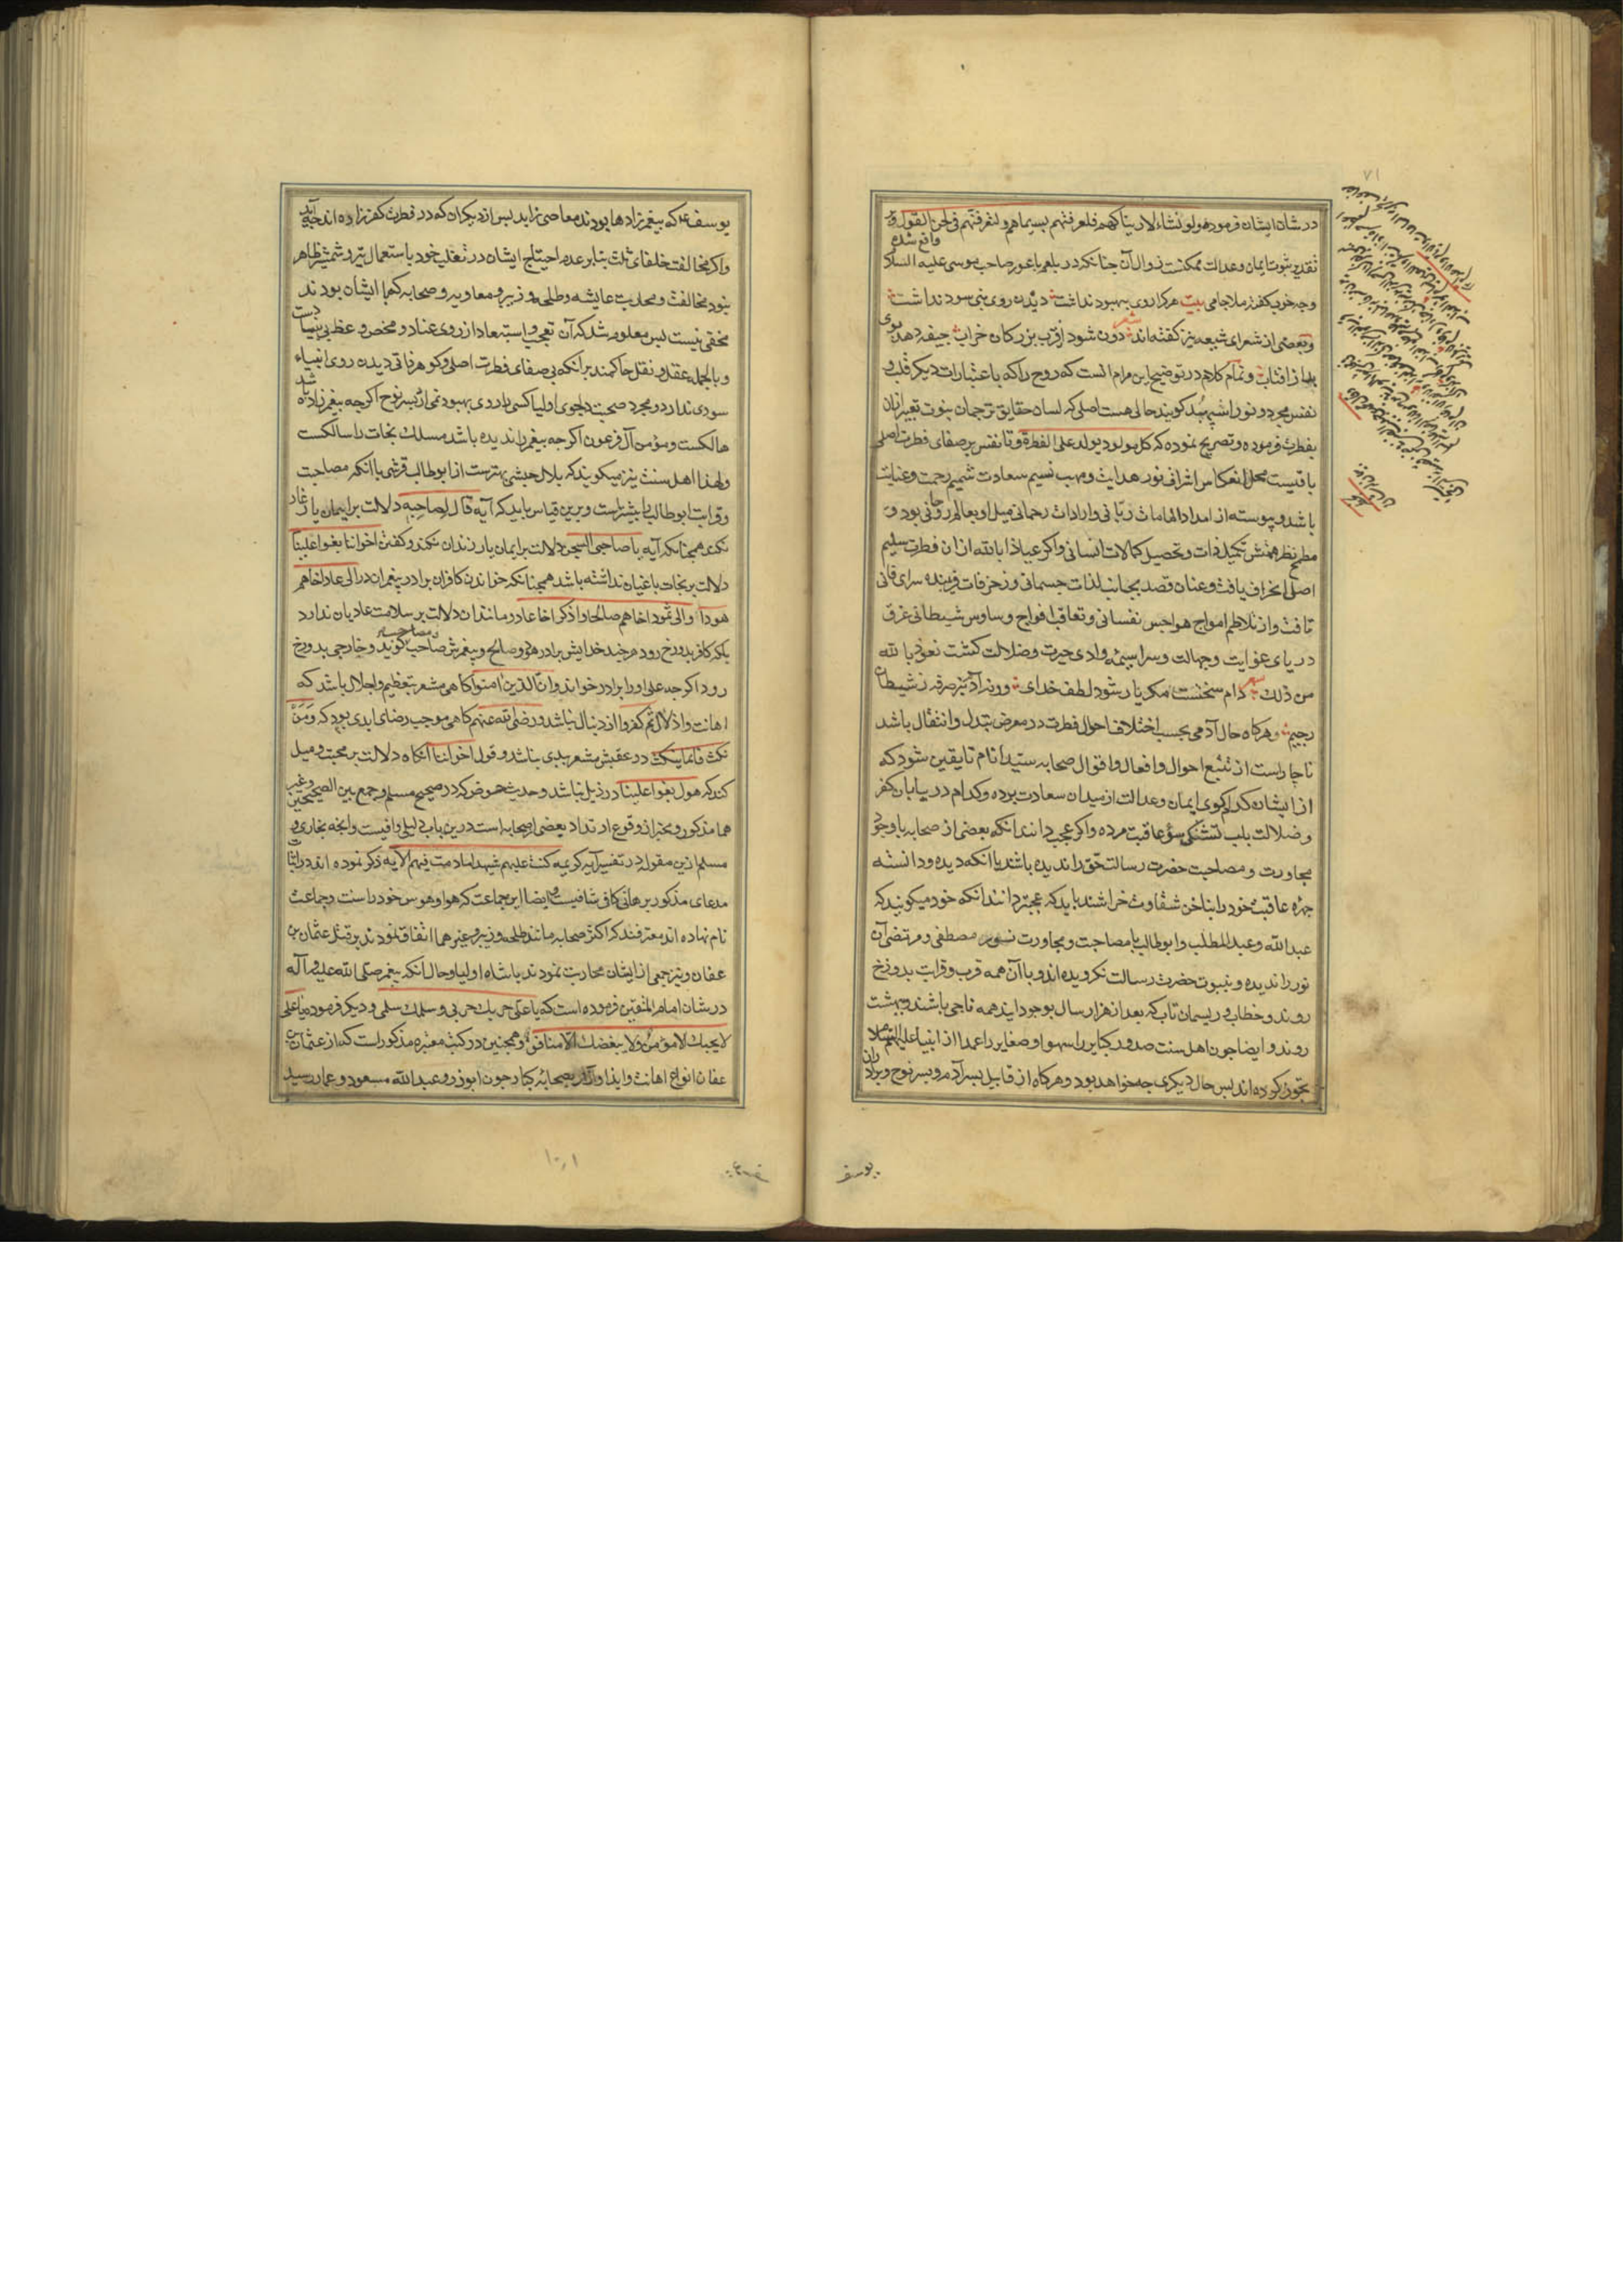 در شان ایشان فرموده ولو نشاء لاریناکهم فلعرفتهم بسیماهم ولتعرفنهم فی لحن القول و بر
تقدیر ثبوت ایمان و عدالت ممکنست زوال آن چنانکه در بلعم باعور صاحب موسی علیه السلام واقع شده
وچه خوب گفته ملا جامی بیت هر که را روی به بهبود نداشت دیدن روی نبی سود نداشت
و بعضی از شعرای شیعه نیز گفته‌اند شعر دون شود از قرب بزرگان خراب جیفه دهد بوی
بد از آفتاب و تمام کلام در توضیح این مرام آنست که روح را که باعتبارات دیگر قلب و
نفس مجرد و نور اسپهبد گویند حالی هست اصلی که لسان حقایق ترجمان نبوت تعبیر از آن
بفطرت فرموده و تصریح نموده که کل مولود یولد علی الفطرة و تا نفس بر صفای فطرت اصلی
باقیست محل انعکاس اشراف نور هدایت و مهب نسیم سعادت شمیم رحمت و عنایت
باشد و پیوسته از امداد الهامات ربانی و ارادات رحمانی میل او بعالم روحانی بود و
مطمح نظر همتش تکمیل ذات و تحصیل کمالات انسانی و اگر عیاذا بالله از ان فطرت سلیم
اصلی انحراف یافت و عنان قصد بجانب لذات جسمانی و زخرفات فریبنده سرای فانی
تافت و از تلاطم امواج هواجس نفسانی و تعاقب افواج وساوس شیطانی غرق
دریای غوایت و جهالت و سراسیمه وادی حیرت و ضلالت گشت نعوذ بالله
من ذلک شعر دام سختست مگر یار شود لطف خدای ورنه آدم نبرد صرفه ز شیطان
رجیم و هرگاه حال آدمی بحسب اختلاف احوال فطرت در معرض تبدل و انتقال باشد
ناچار است از تتبع احوال و افعال و اقوال صحابه سید انام تا یقین شود که
از ایشان کدام گوی ایمان و عدالت از میدان سعادت برده و کدام در بیابان کفر
و ضلالت بلب تشنگی سوء عاقبت مرده و اگر عجب دانند آنکه بعضی از صحابه با وجود
مجاورت و مصاحبت حضرت رسالت حق را ندیده باشند یا آنکه دیده و دانسته
چهره عاقبت خود را بناخن شقاوت خراشند باید که عجبتر دانند آنکه خود میگویند که
عبدالله و عبدالمطلب و ابوطالب با مصاحبت و مجاورت نور مصطفی و مرتضی آن
نور را ندیده و بنبوت حضرت رسالت نگرویده‌اند و با آن همه قرب و قرابت بدوزخ
روند و خطاب و ریسمان تاب که بعد از هزار سال بوجود آیند همه ناجی باشند و ببهشت
روند و ایضا چون اهل سنت صدور کبایر را سهوا و صغایر را عمدا از انبیا علیهم السلام
تجویز کرده‌اند پس حال دیگری چه خواهد بود و هرگاه از قابیل پسر آدم و پسر نوح و برادران
یوسف
۷۱
یوسف ع که پیغمبرزاد‌ها بودند معاصی زاید پس از دیگران که در فطرت کفر زاده‌اند چه آید
و اگر مخالفت خلفای ثلث بنابر عدم احتیاج ایشان در تغلب خود باستعمال تیر و شمشیر ظاهر
نبود مخالفت و محاربت عایشه و طلحه و زبیر و معاویه و صحابه که با ایشان بودند
مخفی نیست پس معلوم شد که آن تعجب و استبعاد از روی عناد و محض و عظ بی بنیادست
و بالجمله عقل و نقل حاکمند بر آنکه بی صفای فطرت اصلی و گوهر ذاتی دیدن روی انبیاء
سودی ندارد و مجرد صحبت و دلجوی اولیا کسی را روی بهبود نمی‌آرد پسر نوح اگرچه پیغمبرزاده باشد
هالکست و مؤمن آل فرعون اگرچه پیغمبر را ندیده باشد مسلک نجات را سالکست
ولهذا اهل سنت نیز میگویند که بلال حبشی بهترست از ابوطالب قرشی با آنکه مصاحبت
و قرابت ابوطالب بیشتر است و برین قیاس باید که آیه قال لصاحبه دلالت بر ایمان یار غار
نکند همچنانکه آیه یا صاحبی السجن دلالت بر ایمان یار زندان نکند و گفتن اخواننا بغوا علینا
دلالت بر نجات باغیان نداشته باشد همچنانکه خواندن کافران برادر پیغمبران در الی عاد اخاهم
هودا والی ثمود اخاهم صالحا و اذکر اخا عاد و مانند ان دلالت بر سلامت عادیان ندارد
بلکه کافر بدوزخ رود هر چند خدایش برادر هود و صالح و پیغمبرش صاحب گوید و خارجی بدوزخ
رود اگرچه علی او را برادر خواند و ان الذین امنوا گاهی مشعر بتعظیم و اجلال باشد که
اهانت و اذلال ثم کفروا از دنبال نباشد و رضی الله عنهم گاهی موجب رضای ابدی بود که و من
نکث فانما ینکث در عقبش مشعر ببدی نباشد و قول اخواننا آنگاه دلالت بر محبت و میل
کند که هول بغوا علینا در ذیل نباشد و حدیث حوض که در صحیح مسلم و جمع بین الصحیحین و غیر
هما مذکور و مخبر از وقوع ارتداد بعضی از صحابه است درین باب دلیلی وافیست و آنچه بخاری و
مسلم ازین مقوله در تفسیر آیه کریمه کنت علیهم شهیدا ما دمت فیهم الآیه ذکر نموده‌اند در اثبات
مدعای مذکور برهانی کافی شافیست و ایضا این جماعت که هوا و هوس خود را سنت و جماعت
نام نهاده‌اند معترفند که اکثر صحابه مانند طلحه و زبیر و غیرهما اتفاق نمودند بر قتل عثمان بن
عفان و نیز جمعی از ایشان محاربت نمودند با شاه اولیا و حال آنکه پیغمبر صلی الله علیه و آله
در شان امام المتقین فرموده است که یا علی حربک حربی و سلمک سلمی و دیگر فرموده یا علی
لا یحبک الا مؤمن ولا یبغضک الا منافق و همچنین در کتب معتبره مذکور است که از عثمان بن
عفان انواع اهانت و ایذا و آزار بصحابه کبار چون ابوذر و عبدالله مسعود و عمار رسید